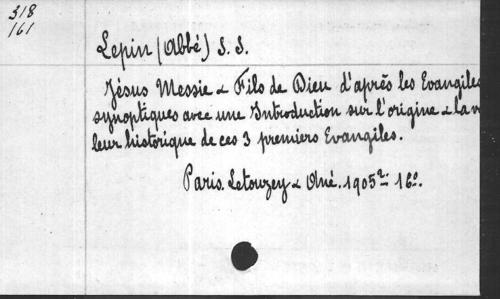 318
161
Lepin (Abbé) S. S.
Jésus Messie & Fils de Dieu d'après les Evangiles
synoptiques avec une Introduction sur l'origine & la va
leur historique de ces 3 premiers Evangiles.
Paris. Letouzey & Ané. 1905². 16º.